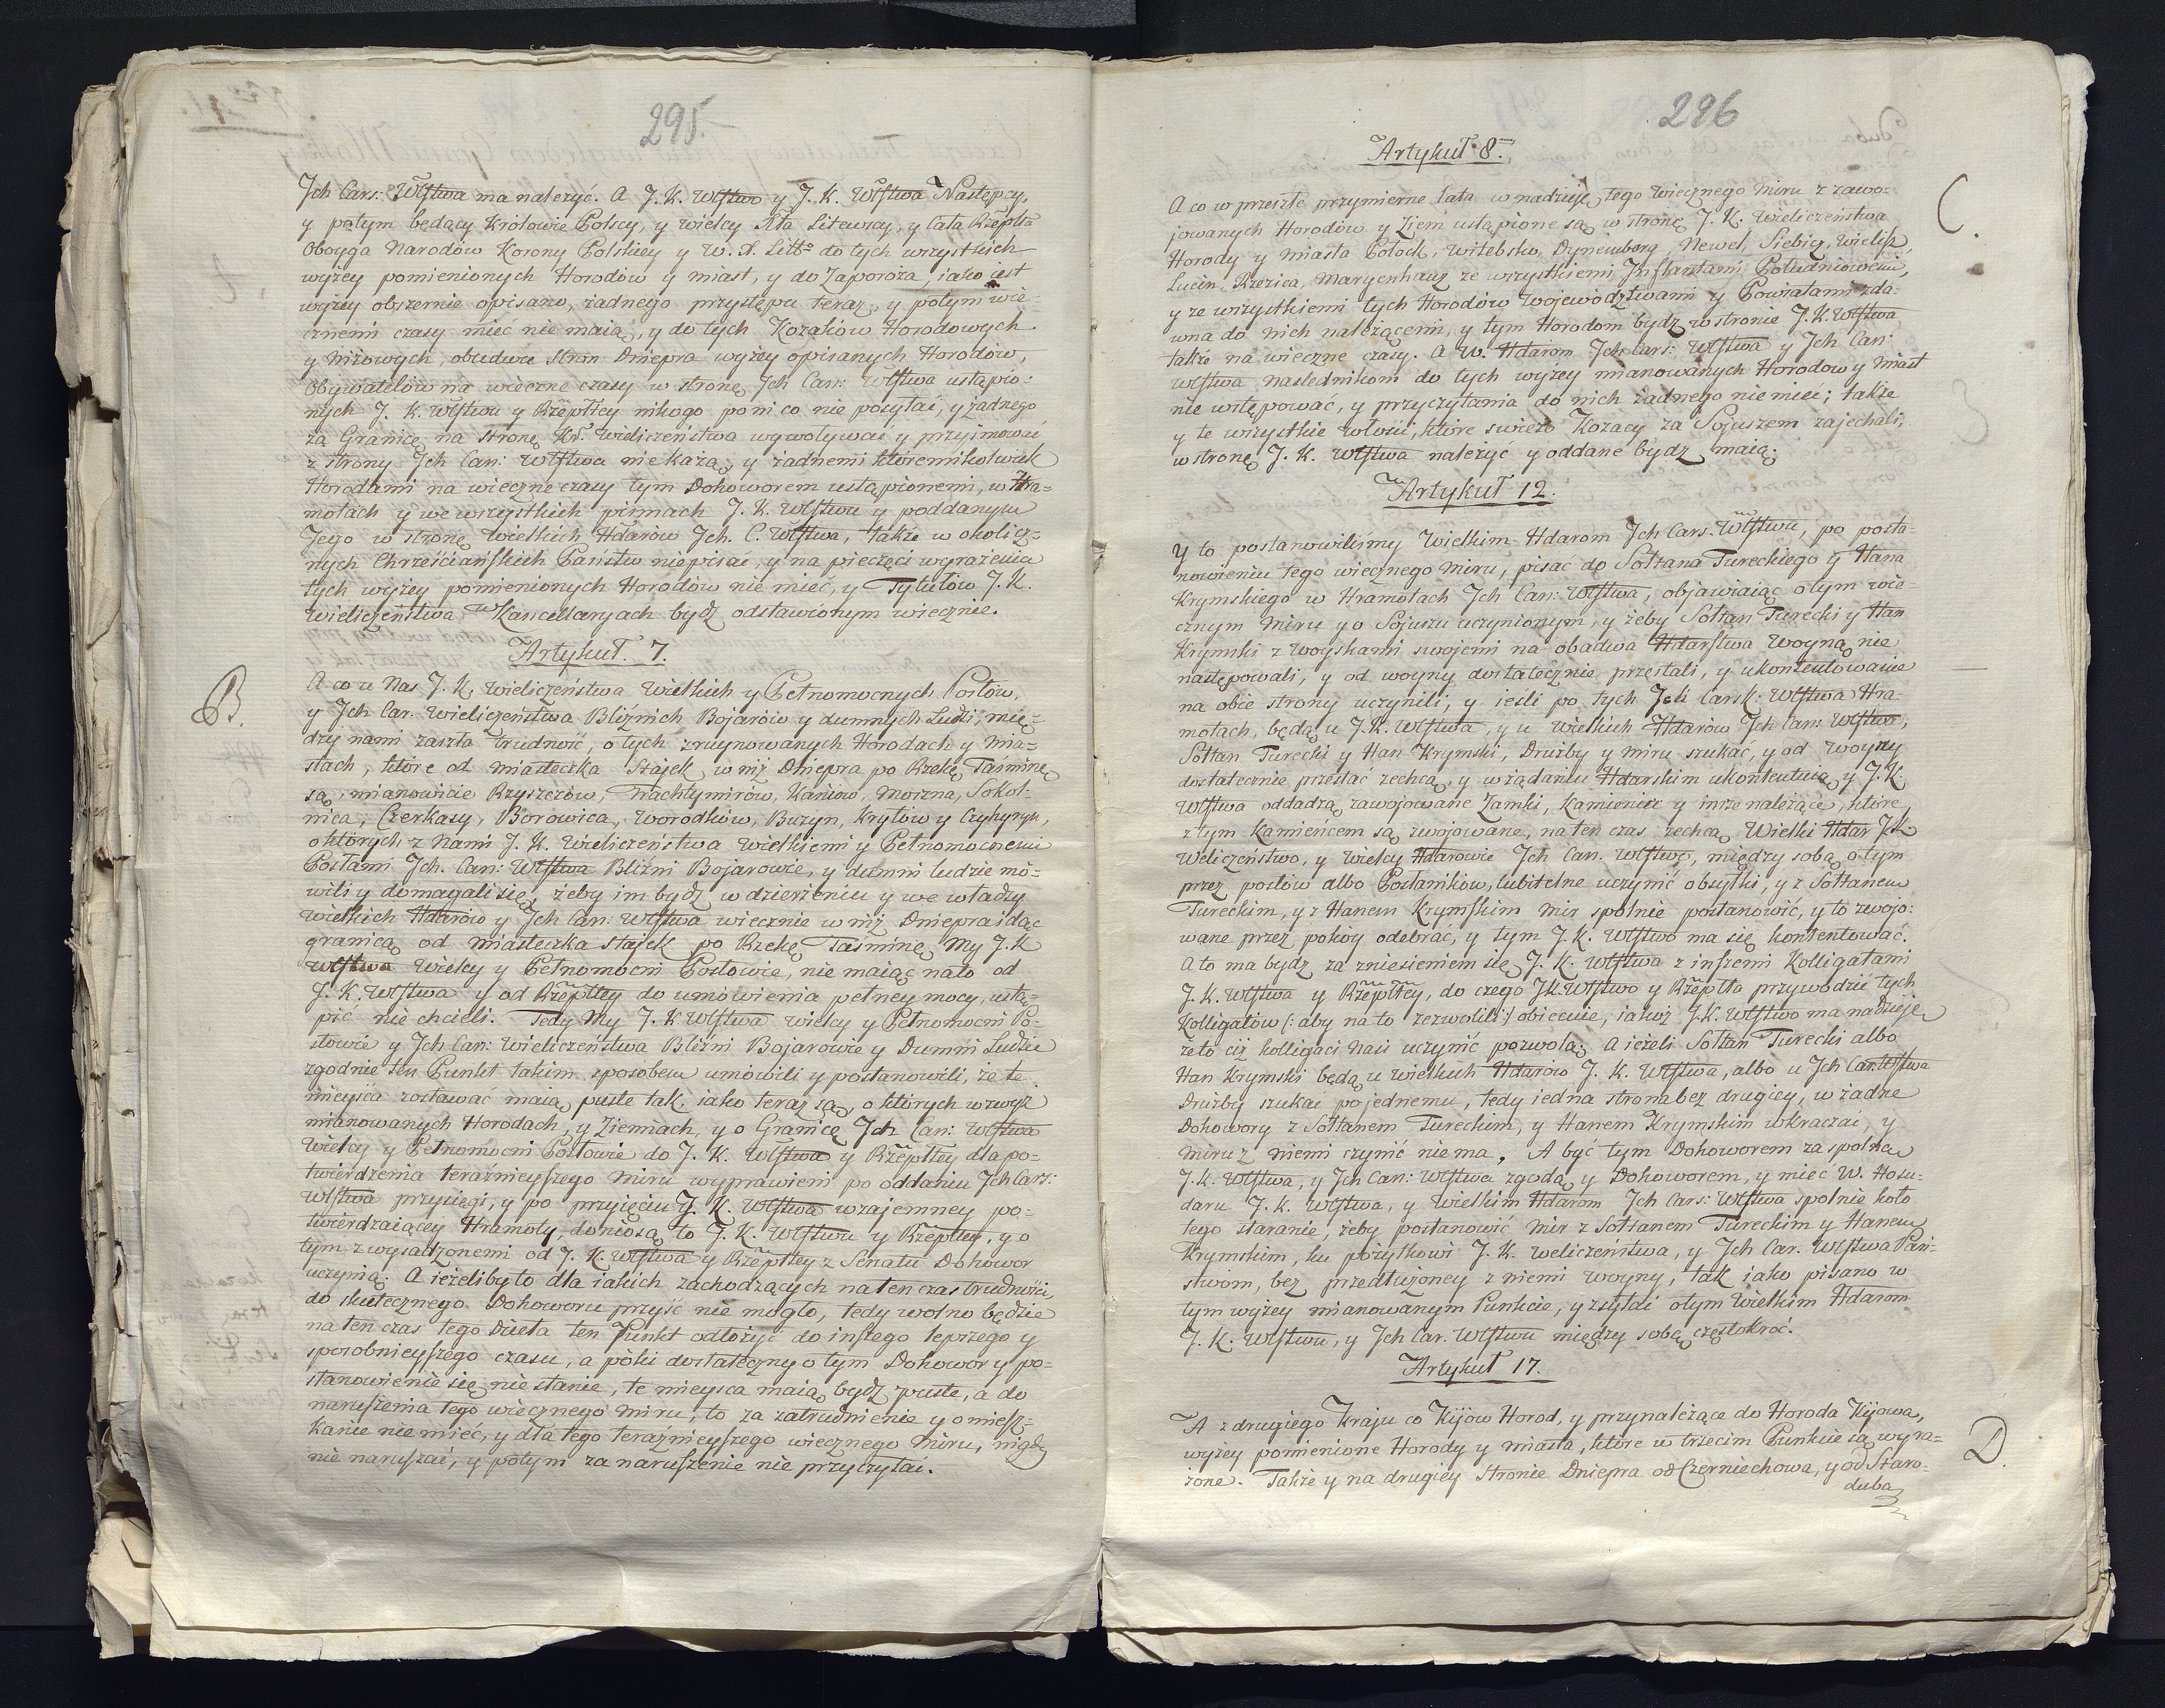 295.
Jch Cars: Włstwa ma należyć. A J. K. Włstwo y J. K. Włstwa Następcy,
y potym będący Krolowie Polscy, y wielcy Xta Litewscy, y cała Rzeplta
Oboyga Narodów Korony Polskiey y W. X. Litto do tych wszystkich
wyżey pomienionych Horodów y miast, y do Zaporoża, iako iest
wyżey obszernie opisano, żadnego przystępu teraz y potym wie-
cznemi czasy mieć nie maią, y do tych Kozaków Horodowych
y Niżowych, obudwu stron Dniepra wyżey opisanych Horodów,
Obywatelów na wieczne czasy w stronę Jch Car: Włstwa ustąpio-
nych J. K. Włstwu y Rzepltey nikogo po ni co nie posyłać, y żadnego
za Granicę na stronę Kr. Wieliczeństwa wywoływać y przyimować
z strony Jch Car: Włstwa nie każą, y żadnemi któremikolwiek
Horodami na wieczne czasy tym Dohoworem ustąpionemi, w Hra-
motach y we wszystkich pismach J. K. Włstwu y poddanym
Jego w stronę Wielkich Hdarów Jch. C. Włstwa, także w okolicz-
nych Chrześciańskich Państw nie pisać, y na pieczęci wyrażenia
tych wyżey pomienionych Horodów nie mieć, y Tytułów J. K.
Wieliczeństwa w Kancellaryach bydź odstawionym wiecznie.
Artykuł. 7.
B.
A co u Nas J. K. Wieliczeństwa Wielkich y Pełnomocnych Posłów,
y Jch Car. Wieliczeństwa Bliżnich Bojarów y dumnych Ludzi, mię-
dzy nami zaszła trudność, o tych zruynowanych Horodach y Mia-
stach, które od miasteczka Stajek w niż Dniepra po Rzekę Taśminę
są, mianowicie Rzyszczów, Trachtymirów, Kaniow, Moszna, Sokol-
nica, Czerkasy, Borowica, Worodków, Buzyn, Kryłów y Czyhyryn,
o których z Nami J. K. Wieliczeństwa Wielkiemi y Pełnomocnemi
Posłami Jch. Car: Włstwa Bliżni Bojarowie, y dumni ludzie mó-
wili y domagali się, żeby im bydź w dzierżeniu y we władzy
Wielkich Hdarów y Jch Car: Włstwa wiecznie w niż Dniepra idąc
granicą od miasteczka Stajek po Rzekę Taśminę, My J. K
Włstwa Wielcy y Pełnomocni Posłowie, nie maiąc na to od
J. K. Włstwa y od Rzepltey do umówienia pełney mocy, ustą-
pić nie chcieli. Tedy My J. K Włstwa wielcy y Pełnomocni Po-
słowie y Jch Car: Wieliczeństwa Bliżni Bojarowie y Dumni Ludzie
zgodnie ten Punkt takim sposobem umówili y postanowili, że te
mieysca zostawać maią puste tak, iako teraz są, o których wzwyż
mianowanych Horodach, y Ziemiach, y o Granicę Jch Car: Włstwa
Wielcy y Pełnomocni Posłowie do J. K. Włstwa y Rzepltey dla po-
twierdzenia teraźnieyszego Miru wyprawieni po oddaniu Jch Cars:
Włstwa przysięgi, y po przyięciu J. K. Włstwa wzajemney po-
twierdzaiącey Hramoty, doniosą to J. K. Włstwu y Rzepltey, y o
tym z wysadzonemi od J. K. Włstwa y Rzepltey z Senatu Dohowor
uczynią. A ieżeliby to dla iakich zachodzących na ten czas trudności,
do skutecznego Dohoworu przyść nie mogło, tedy wolno będzie
na ten czas tego Dzieła ten Punkt odłożyć do inszego lepszego y
sposobnieyszego czasu, a póki dostateczny o tym Dohowor y po-
stanowienie się nie stanie, te mieysca maią bydź puste, a do
naruszenia tego wiecznego Miru, to za zatrudnienie y omiesz-
kanie nie mieć, y dla tego teraznieyszego wiecznego Miru, nigdy
nie naruszać, y potym za naruszenie nie przyczytać.
296
Artykuł 8.
C.
A co w przeszłe przymierne lata w nadzieję tego Wiecznego Miru z zawo-
jowanych Horodów y Ziem ustąpione są w stronę J. K. Wieliczeństwa
Horody y Miasta Połock, Witebsko, Dynemborg, Newel, Siebiż, Wieliż,
Lucin, Rzezica, Maryenhauz ze wszystkiemi Inflantami Południowemi,
y ze wszystkiemi tych Horodów Wojewodztwami y Powiatami zda-
wna do nich należącemi, y tym Horodom bydz w stronie J. K. Włstwa
także na wieczne czasy. A W. Hdarom Jch Cars: Włstwa y Jch Car:
Włstwa naslednikom do tych wyżey mianowanych Horodow y Miast
nie wstępować, y przyczytania do nich żadnego nie mieć; także
y te wszystkie włości, które swieżo Kozacy za Sojuszem zajechali,
w stronę J. K. Włstwa należyć y oddane bydz maią.
Artykuł 12.
Y to postanowiliśmy Wielkim Hdarom Jch Cars. Włstwu, po posta-
nowieniu tego wiecznego Miru, pisać do Sołtana Tureckiego y Hana
Krymskiego w Hramotach Jch Car: Włstwa, objawiaiąc o tym wie-
cznym Miru y o Sojuszu uczynionym, y żeby Sołtan Turecki y Han
Krymski z woyskami swojemi na obadwa Hdarstwa Woyną nie
następowali, y od woyny dostatecznie przestali, y ukontentowanie
na obie strony uczynili, y ieśli po tych Jch Carsk: Włstwa Hra-
motach, będą u J. K. Włstwa, y u Wielkich Hdarów Jch Car: Włstwa,
Sołtan Turecki y Han Krymski, Drużby y miru szukać, y od woyny
dostatecznie przestać zechcą, y w żądaniu Hdarskim ukontentuią y J. K.
Włstwa oddadzą zawojowane Zamki, Kamieniec y insze należące, które
z tym Kamieńcem są zwojowane, na ten czas zechcą Wielki Hdar J K
Weliczeństwo, y Wielcy Hdarowie Jch Car. Włstwo, między sobą o tym
przez posłów albo Posłanników, lubitelne uczynić obsyłki, y z Sołtanem
Tureckim, y z Hanem Krymskim Mir spolnie postanowić, y to zwojo-
wane przez pokóy odebrać, y tym J. K. Włstwo ma się kontentować.
A to ma bydz za zniesieniem się J. K. Włstwa z inszemi Kolligatami
J. K. Włstwa y Rzepltey, do czego J K Włstwo y Rzeplta przywodzić tych
Kolligatów (: aby na to zezwolili :) obiecuie, iakoż J. K. Włstwo ma nadzieję
że to ciż kolligaci Nasi uczynić pozwolą; A ieżeli Sołtan Turecki albo
Han Krymski będą u Wielkich Hdarów J. K. Włstwa, albo u Jch Car. Włstwa
Drużby szukać po jednemu, tedy iedna strona bez drugiey, w żadne
Dohowory z Sołtanem Tureckim, y Hanem Krymskim wkraczać, y
Miru z niemi czynić nie ma. A być tym Dohoworem za spolną
J. K. Włstwa, y Jch Car: Włstwa zgodą y Dohoworem, y mieć W. Hosu-
daru J. K. Włstwa, y Wielkim Hdarom Jch Cars: Włstwa spolnie koło
tego staranie, żeby postanowić Mir z Sołtanem Tureckim y Hanem
Krymskim, ku pożytkowi J. K. weliczeństwa, y Jch Car. Włstwa Pań-
stwom, bez przedłużoney z niemi woyny, tak iako pisano w
tym wyżey mianowanym Punkcie, y zsyłać o tym Wielkim Hdarom
J. K. Włstwu, y Jch Car. Włstwu między sobą częstokroć.
Artykuł 17.
D.
A z drugiego Kraju co Kijow Horod, y przynależące do Horoda Kijowa,
wyżey pomienione Horody y miasta, które w trzecim Punkcie są wyra-
żone. Także y na drugiey Stronie Dniepra od Czerniechowa, y od Staro-
duba